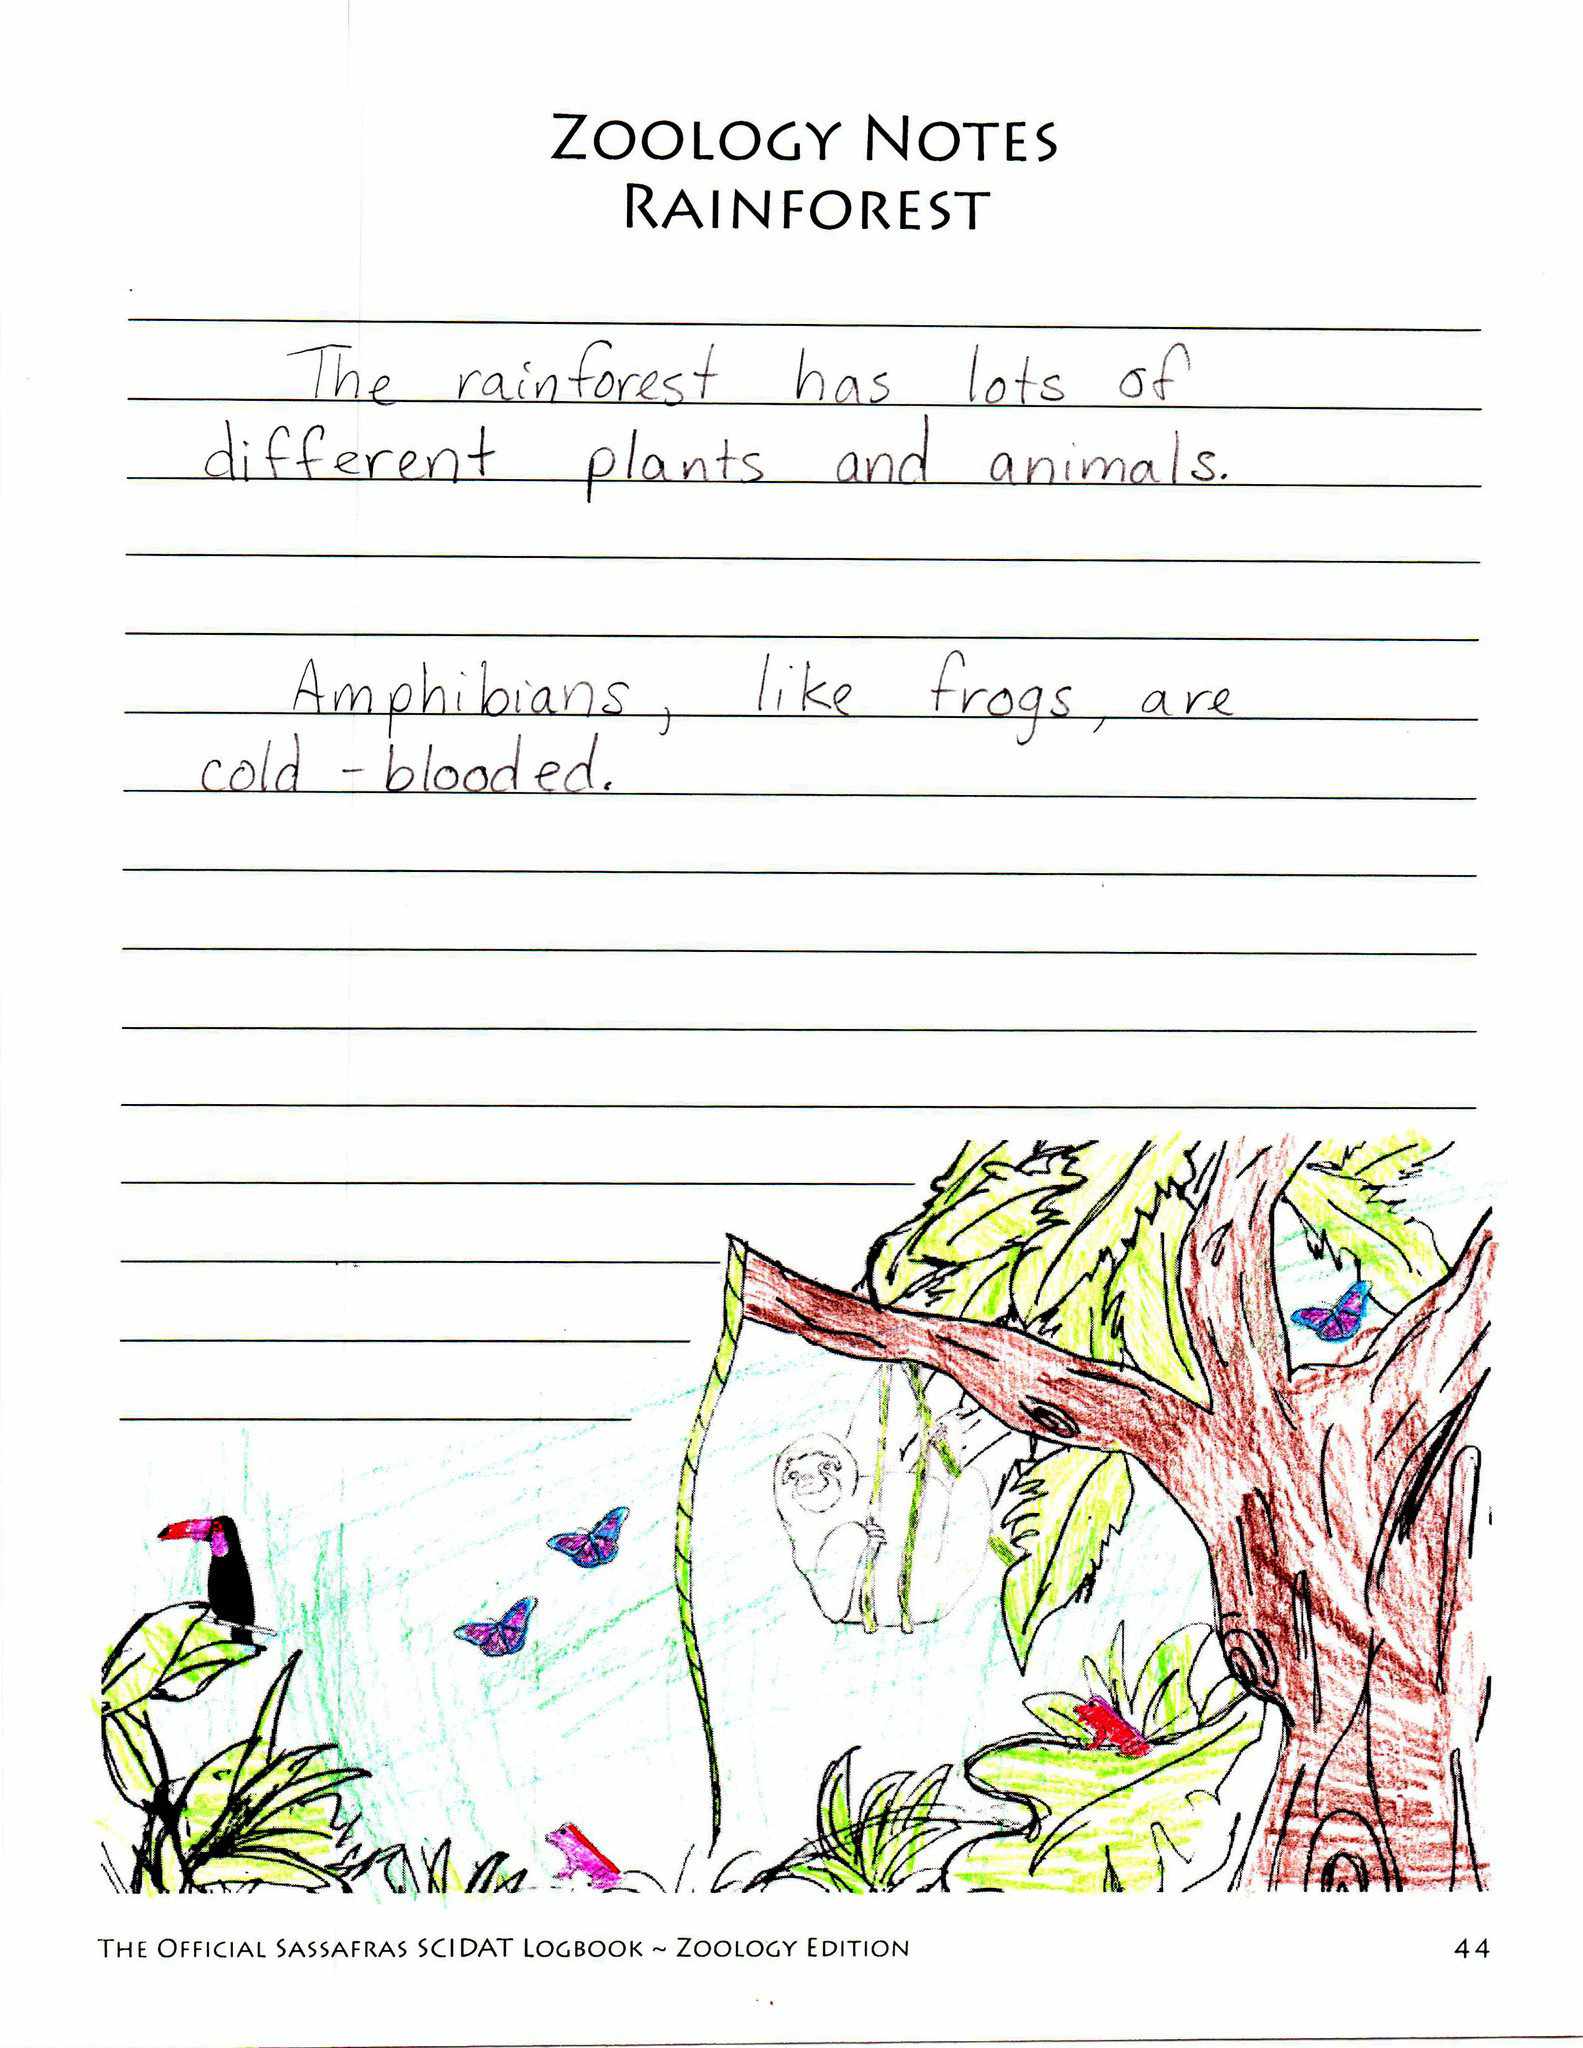 ZOOLOGY NOTES
RAINFOREST
The rainforest has lots of
different plants and animals.
Amphibians, like frogs, are
cold-blooded.
THE OFFICIAL SASSAFRAS SCIDAT LOGBOOK ~ ZOOLOGY EDITION
44